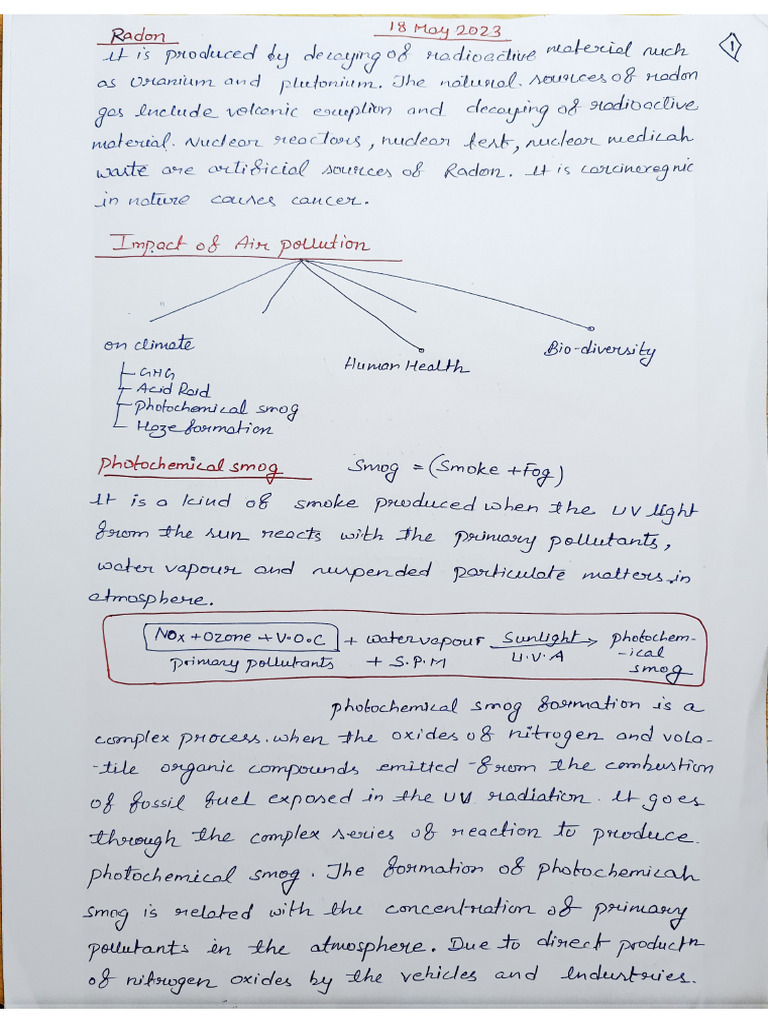 Radon
18 May 2023
1
It is produced by decaying of radioactive material such
as Uranium and plutonium. The natural sources of radon
gas include volcanic eruption and decaying of radioactive
material. Nuclear reactors, nuclear test, nuclear medical
waste are artificial sources of Radon. It is carcinoregnic
in nature causes cancer.
Impact of Air pollution
on climate
Human Health
Bio-diversity
GHG
Acid Raid
Photochemical smog
Haze formation
photochemical smog
Smog = (Smoke + Fog)
It is a kind of smoke produced when the UV light
from the sun reacts with the primary pollutants,
water vapour and suspended particulate matters in
atmosphere.
NOx + Ozone + V.O.C + water vapour Sunlight photochem-
primary pollutants + S.P.M U.V.A -ical
smog
photochemical smog formation is a
complex process. when the oxides of nitrogen and vola-
-tile organic compounds emitted from the combustion
of fossil fuel exposed in the UV radiation. It goes
through the complex series of reaction to produce
photochemical smog. The formation of photochemical
smog is related with the concentration of primary
pollutants in the atmosphere. Due to direct productn
of nitrogen oxides by the vehicles and Industries.